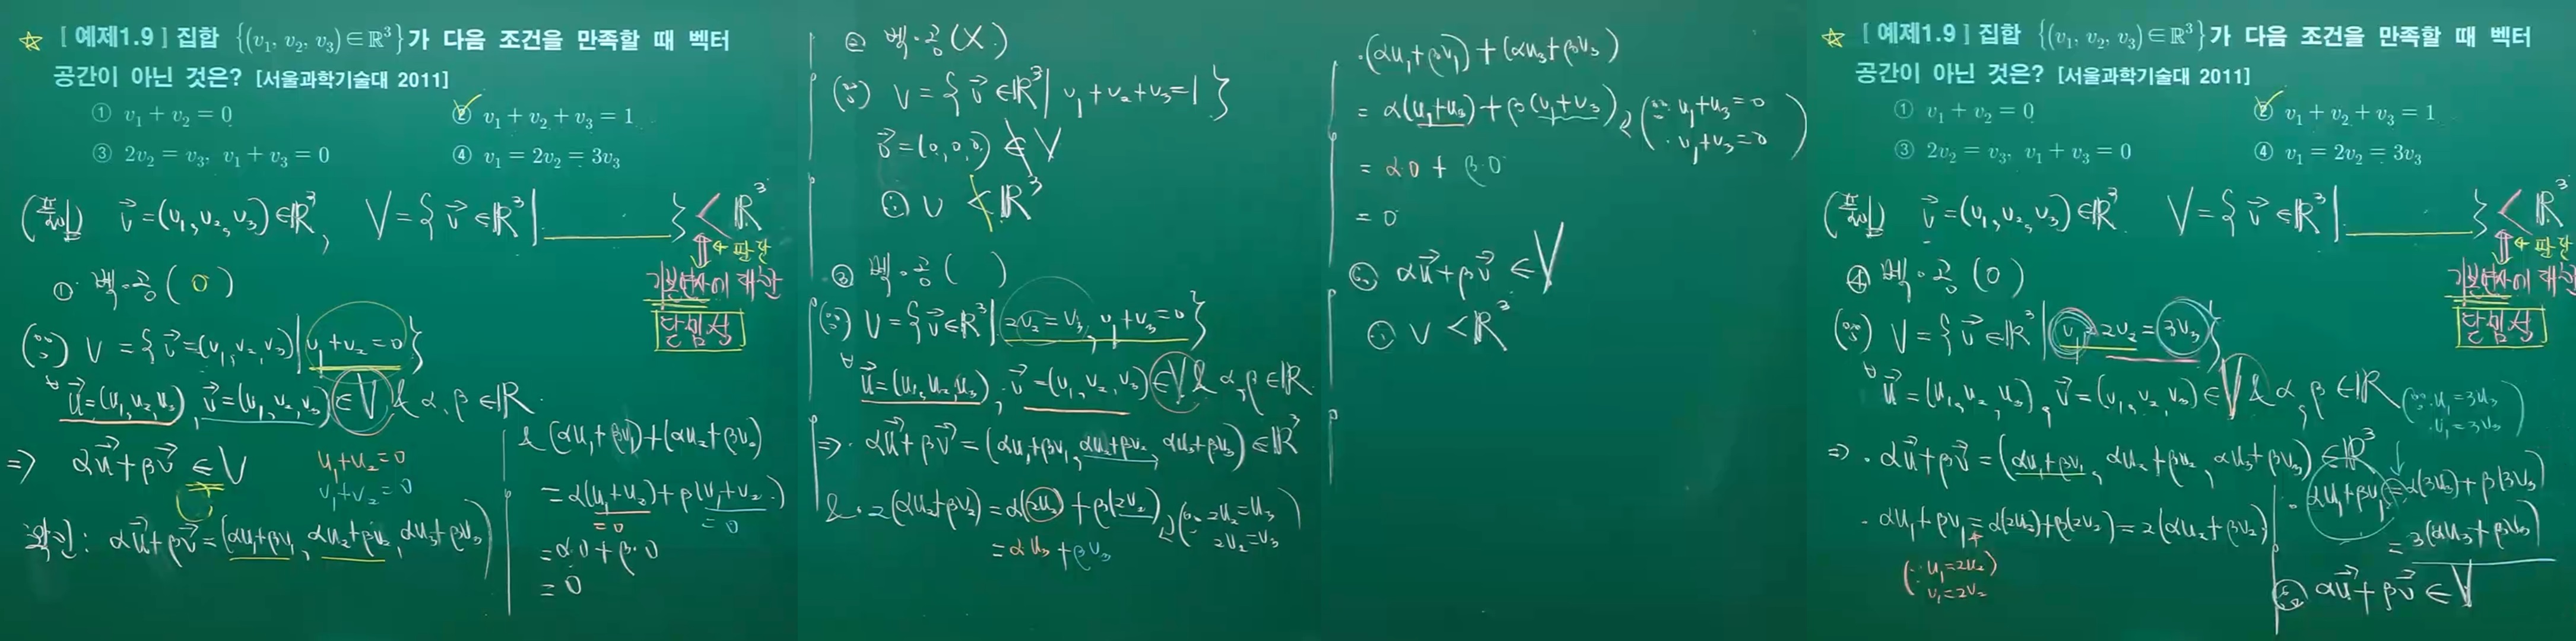 ☆ [ 예제1.9 ] 집합 {(v₁, v₂, v₃)∈ℝ³}가 다음 조건을 만족할 때 벡터
공간이 아닌 것은? [서울과학기술대 2011]
① v₁ + v₂ = 0 ② v₁ + v₂ + v₃ = 1
③ 2v₂ = v₃, v₁ + v₃ = 0 ④ v₁ = 2v₂ = 3v₃
(풀이) v⃗ = (v₁, v₂, v₃) ∈ ℝ³, V = { v⃗ ∈ ℝ³ | ______ } < ℝ³
⇕ ← 판단
기본연산에 대한
닫힘성
① 벡·공 ( O )
(∵) V = { v⃗ = (v₁, v₂, v₃) | v₁ + v₂ = 0 }
∀ u⃗ = (u₁, u₂, u₃), v⃗ = (v₁, v₂, v₃) ∈ V & α, β ∈ ℝ
⇒ αu⃗ + βv⃗ ∈ V
u₁ + u₂ = 0
v₁ + v₂ = 0
확인 : αu⃗ + βv⃗ = (αu₁ + βv₁, αu₂ + βv₂, αu₃ + βv₃)
& (αu₁ + βv₁) + (αu₂ + βv₂)
= α(u₁ + u₂) + β(v₁ + v₂)
= 0 = 0
= α·0 + β·0
= 0
② 벡·공 (X)
(∵) V = { v⃗ ∈ ℝ³ | v₁ + v₂ + v₃ = 1 }
o⃗ = (0, 0, 0) ∉ V
∴ V ≮ ℝ³
③ 벡·공 ( )
(∵) V = { v⃗ ∈ ℝ³ | 2v₂ = v₃, v₁ + v₃ = 0 }
∀ u⃗ = (u₁, u₂, u₃), v⃗ = (v₁, v₂, v₃) ∈ V & α, β ∈ ℝ
⇒ · αu⃗ + βv⃗ = (αu₁ + βv₁, αu₂ + βv₂, αu₃ + βv₃) ∈ ℝ³
& · 2(αu₂ + βv₂) = α(2u₂) + β(2v₂)
(∵ · 2u₂ = u₃
· 2v₂ = v₃)
= αu₃ + βv₃
· (αu₁ + βv₁) + (αu₃ + βv₃)
= α(u₁ + u₃) + β(v₁ + v₃)
(∵ · u₁ + u₃ = 0
· v₁ + v₃ = 0)
= α·0 + β·0
= 0
∴ αu⃗ + βv⃗ ∈ V
∴ V < ℝ³
☆ [ 예제1.9 ] 집합 {(v₁, v₂, v₃)∈ℝ³}가 다음 조건을 만족할 때 벡터
공간이 아닌 것은? [서울과학기술대 2011]
① v₁ + v₂ = 0 ② v₁ + v₂ + v₃ = 1
③ 2v₂ = v₃, v₁ + v₃ = 0 ④ v₁ = 2v₂ = 3v₃
(풀이) v⃗ = (v₁, v₂, v₃) ∈ ℝ³ V = { v⃗ ∈ ℝ³ | ______ } < ℝ³
⇕ ← 판단
기본연산에 대한
닫힘성
④ 벡·공 (O)
(∵) V = { v⃗ ∈ ℝ³ | v₁ = 2v₂ = 3v₃ }
∀ u⃗ = (u₁, u₂, u₃), v⃗ = (v₁, v₂, v₃) ∈ V & α, β ∈ ℝ
(∵ · u₁ = 3u₃
· v₁ = 3v₃)
⇒ · αu⃗ + βv⃗ = (αu₁ + βv₁, αu₂ + βv₂, αu₃ + βv₃) ∈ ℝ³
· αu₁ + βv₁ = α(2u₂) + β(2v₂) = 2(αu₂ + βv₂)
(∵ · u₁ = 2u₂
v₁ = 2v₂)
· αu₁ + βv₁ = α(3u₃) + β(3v₃)
= 3(αu₃ + βv₃)
∴ αu⃗ + βv⃗ ∈ V